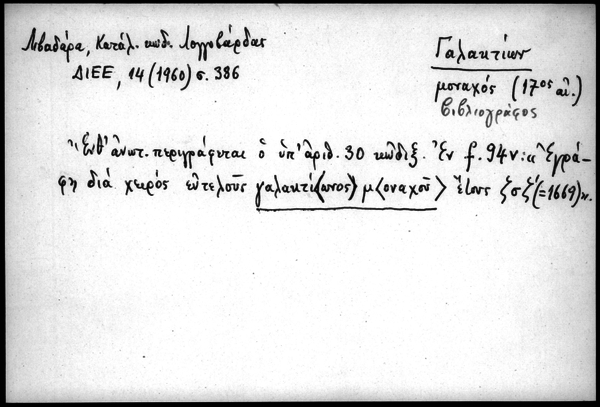 Λιβαδάρα, Κατάλ. κωδ. Λογγοβάρδας
ΔΙΕΕ, 14 (1960) σ. 386
Γαλακτίων
μοναχός (17ος αἰ.)
βιβλιογράφος
"Ἔνθ' ἀνωτ. περιγράφεται ὁ ὑπ' ἀριθ. 30 κῶδιξ. Ἐν f. 94v: «Ἐγρά-
φη διά χειρός εὐτελοῦς γαλακτί(ωνος) μ<οναχοῦ> ἔτους ζσζ´ (=1669)».